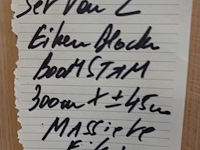 Set van 2
Eiken Blocken
BOOMSTAM
300cm X ± 45cm
MASSIEVE